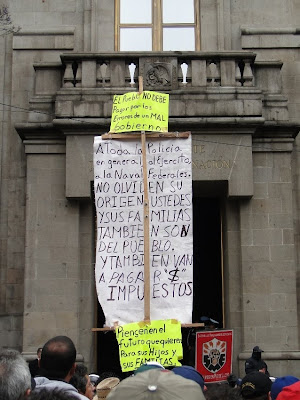 El Pueblo NO DEBE
Pagar por los
Errores de un MAL
Gobierno.
A Toda la Policia
en general al Ejercito,
a la Naval Federales.
NO OLVIDEN SU
ORIGEN USTEDES
Y SUS FAMILIAS
TAMBIEN SON
DEL PUEBLO.
Y TAMBIEN VAN
A PAGAR "$"
IMPUESTOS
Piensen en el
futuro que quieren
para sus Hijos y
sus FAMILIAS